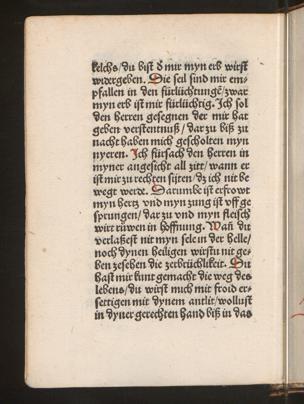 kelchs/du bist d̕ mir myn erb wirst
widergeben. Die seil sind mir em-
pfallen in den fürlüchtungē/zwar
myn erb ist mir fürlüchtig. Ich sol
den herren gesegnen der mir hat
geben verstentnuß/dar zu biß zu
nacht haben mich gescholten myn
nyeren. Ich fürsach den herren in
myner angesicht all zitt/wann er
ist mir zu rechten siten/dz ich nit be
wegt werde. Darumbe ist erfrowt
myn hertz vnd myn zung ist vff ge
sprungen/dar zu vnd myn fleisch
wirt rüwen in hoffnung. Wañ du
verlaßest nit myn sele in der helle/
noch dynen heiligen wirstu nit ge-
ben zesehen die zerbrüchlikeit. Du
hast mir kunt gemacht die weg des
lebens/du wirst mich mit froid er-
settigen mit dynem antlit/wollust
in dyner gerechten hand biß in das